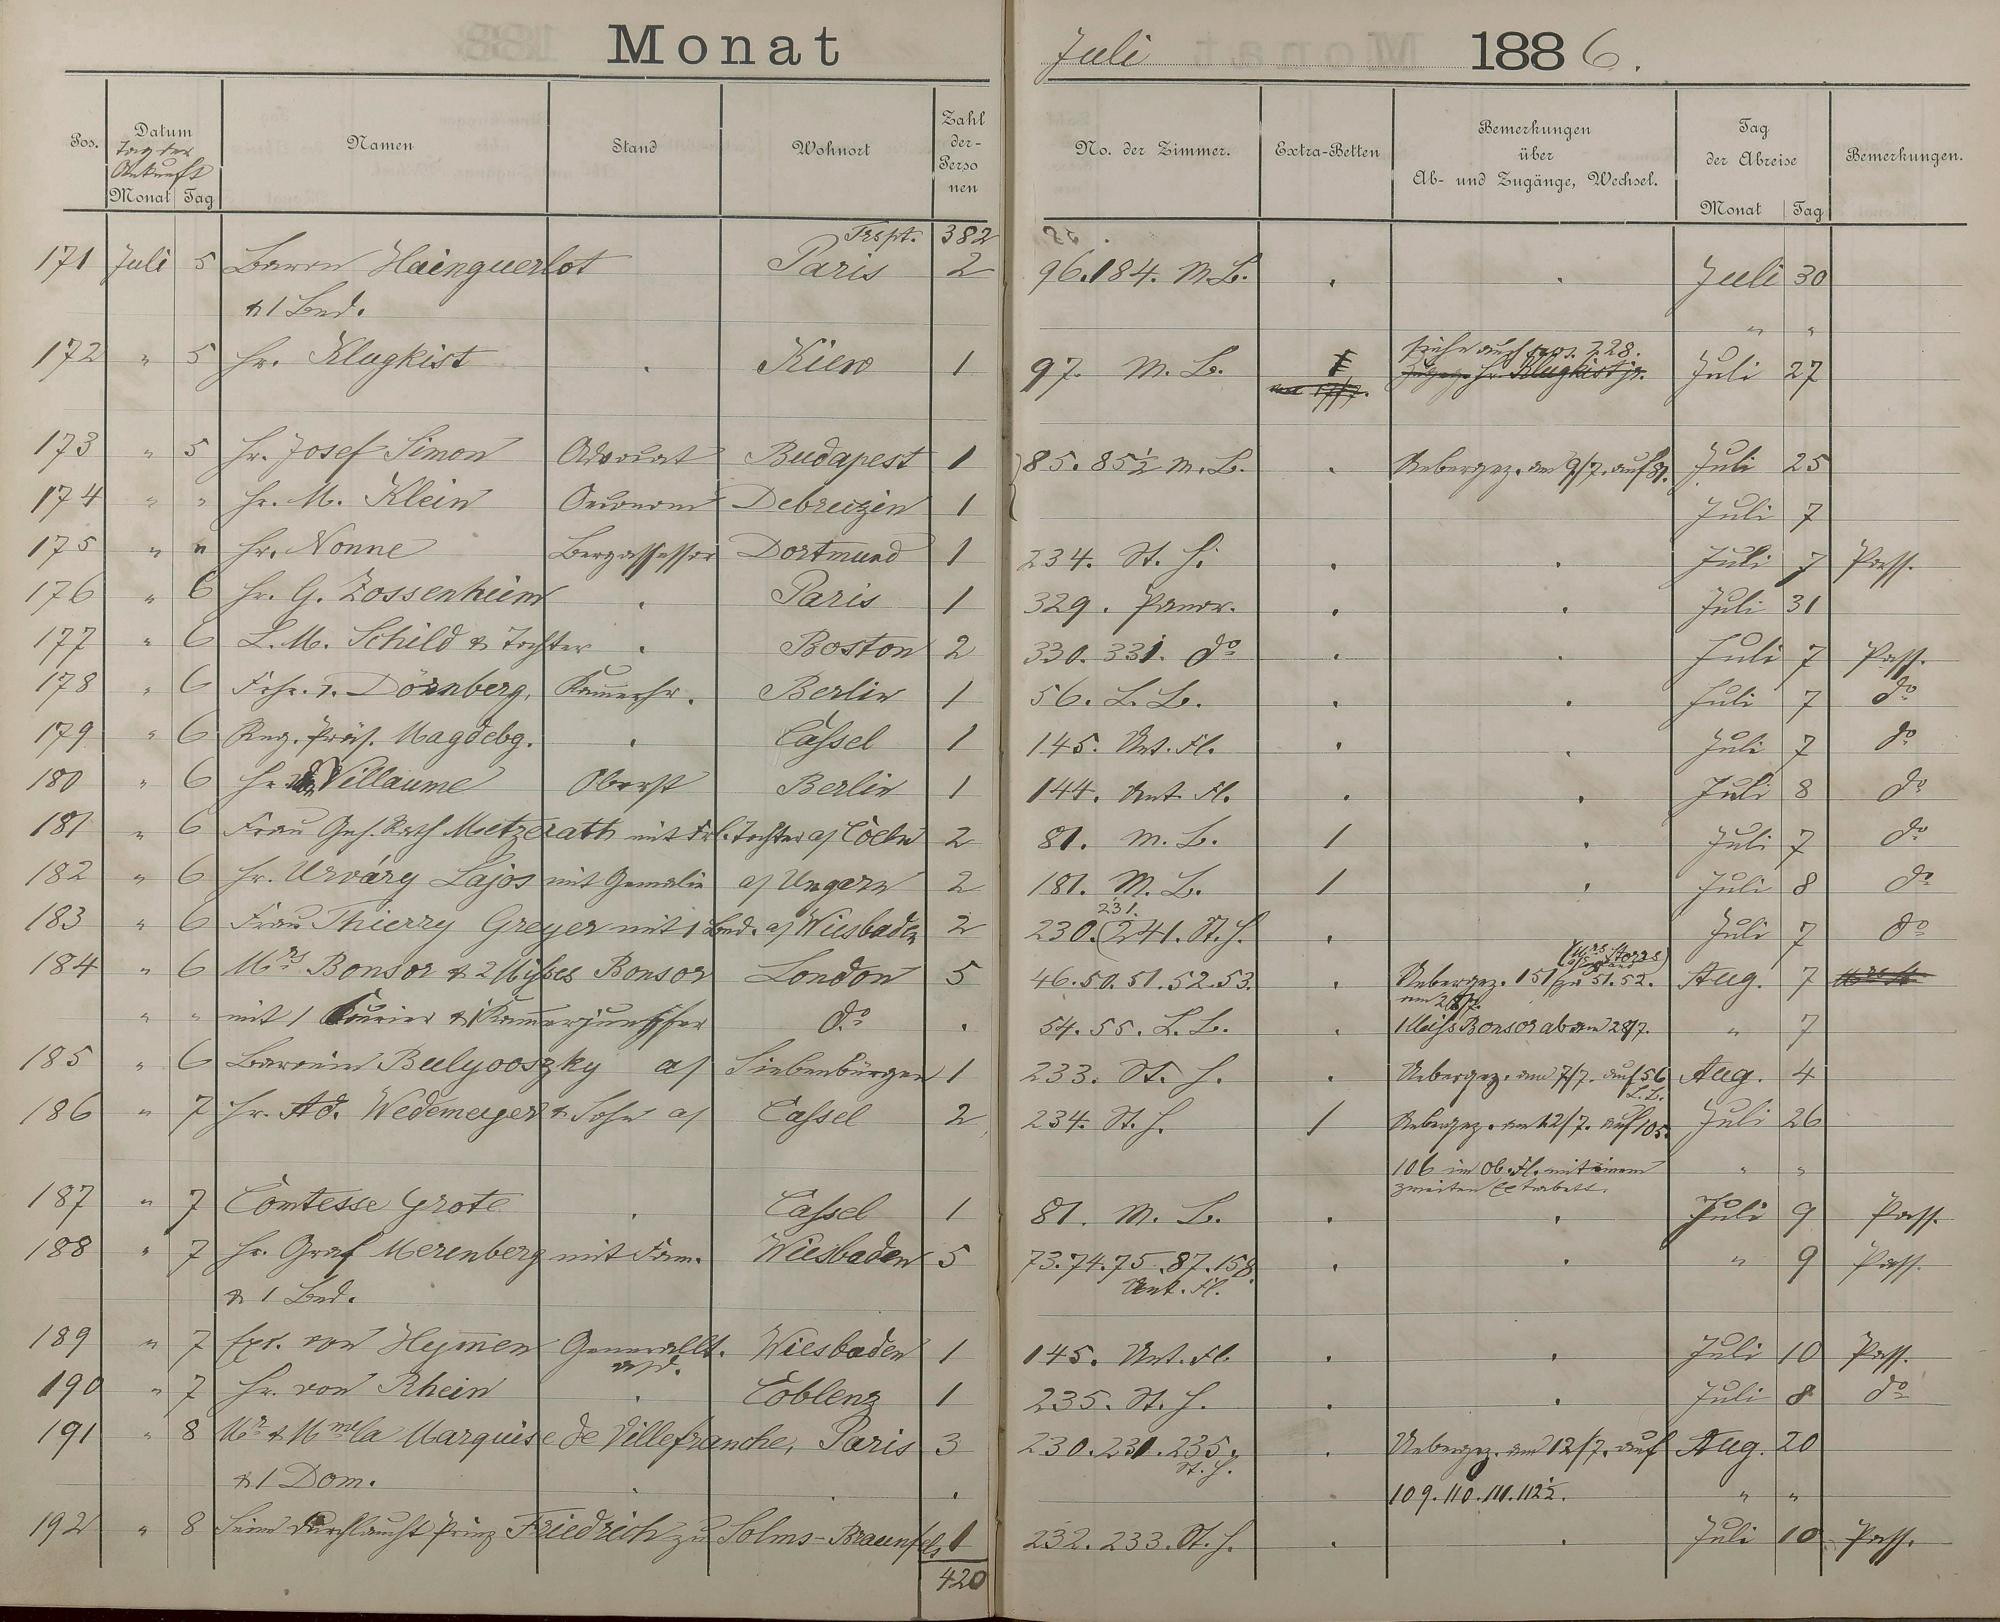 Monat Juli 1886.
Pos. Datum Namen Stand Wohnort Zahl der Personen No. der Zimmer. Extra-Betten Bemerkungen über Ab- und Zugänge, Wechsel. Tag der Abreise Bemerkungen.
Tag der Ankunft
Monat Tag Monat Tag
Trspt. 382
171 Juli 5 Baron Hainguerlot Paris 2 96.184. M.B. . . Juli 30
& 1 Bed. " "
172 " 5 Hr. Klugkist . Kiew 1 97. M. B. Siehe auch pos. 228. Juli 27
Hr. Klugkist jr.
173 " 5 Hr. Josef Simon Advocat Budapest 1 85. 85½ M. B. . Uebergez. am 9/7. auf 81. Juli 25
174 " " Hr. M. Klein Oeconom Debreczin 1 Juli 7
175 " " Hr. Nonne Bergassessor Dortmund 1 234. St. H. . . Juli 7 Pass.
176 " 6 Hr. G. Zossenheim . Paris 1 329. Panor. . . Juli 31
177 " 6 L. M. Schild & Tochter . Boston 2 330. 331. do . . Juli 7 Pass.
178 " 6 Frhr. v. Dörnberg, Kammerhr. Berlin 1 56. L. B. . . Juli 7 do
179 " 6 Reg. Präs. Magdebg. . Cassel 1 145. Unt. Fl. . . Juli 7 do
180 " 6 Hr. Villaume Oberst Berlin 1 144. Unt. Fl. . . Juli 8 do
181 " 6 Frau Geh. Rath Metzerath mit Frl. Tochter a/ Coeln 2 81. M. B. 1 . Juli 7 do
182 " 6 Hr. Urváry Lajos mit Gemalin a/ Ungarn 2 181. M. B. 1 . Juli 8 do
231.
183 " 6 Frau Thierry Greyer mit 1 Bed. a/ Wiesbaden 2 230. (241. St. H. . Juli 7 do
(Mrs. Storrs)
184 " 6 Mrs Bonsor & 2 Misses Bonsor London 5 46.50.51.52.53. . Uebergez. 151 zu 51.52. Aug. 7
" " mit 1 Kurier & 1 Kammerjungfer do . 54. 55. L. B. . 1 Miss Bonsor ab am 28/7. " 7
185 " 6 Baronin Bulyooszky a/ Siebenbürgen 1 233. St. H. . Uebergez. am 7/7. auf 56 L.B. Aug. 4
186 " 7 Hr. Ad. Wedemeyer & Sohn a/ Cassel 2 234. St. H. 1 Uebergez. am 12/7. auf 105. Juli 26
106 im Ob. Fl. mit einem " "
zweiten Extrabett.
187 " 7 Comtesse Grote . Cassel 1 81. M. B. . . Juli 9 Pass.
188 " 7 Hr. Graf Merenberg mit Fam. Wiesbaden 5 73.74.75.87.158. . . " 9 Pass.
& 1 Bed. Unt. Fl.
189 " 7 Exc. von Hymmen Generallt. Wiesbaden 1 145. Unt. Fl. . . Juli 10 Pass.
a/d.
190 " 7 Hr. von Rhein . Coblenz 1 235. St. H. . . Juli 8 do
191 " 8 Mr & Mme la Marquise de Villefranche, Paris 3 230.231.235. . Uebergez. am 12/7. auf Aug. 20
St. H.
& 1 Dom. . . . 109. 110. 111. 112½. " "
192 " 8 Seine Durchlaucht Prinz Friedrich zu Solms-Braunfels 1 232. 233. St. H. . . Juli 10 Pass.
420